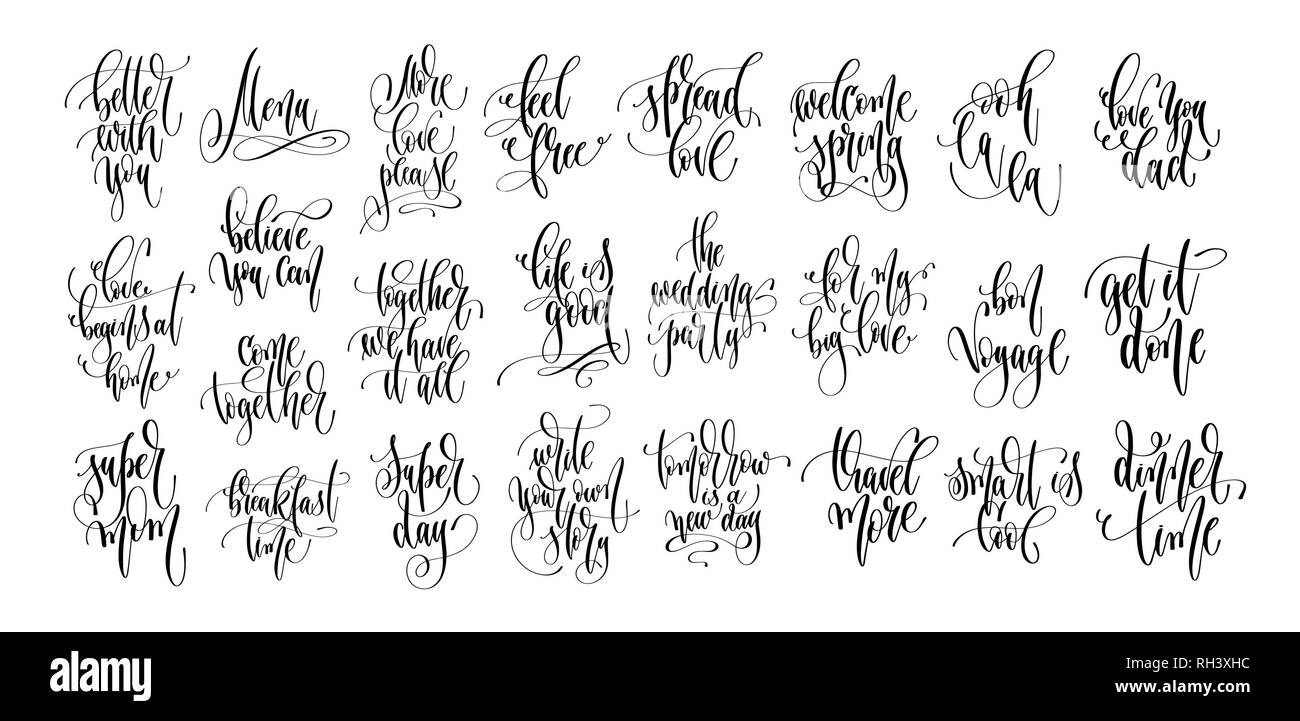 better
with
you
Menu
More
love
please
feel
free
spread
love
welcome
spring
ooh
la
la
love you
dad
believe
you can
love
begins at
home
together
we have
it all
life is
good
the
wedding
party
for my
big love
bon
Voyage
get it
done
come
together
super
mom
breakfast
time
Super
day
write
your own
story
tomorrow
is a
new day
travel
more
smart is
cool
dinner
time
alamy
Image ID: RH3XHC
www.alamy.com